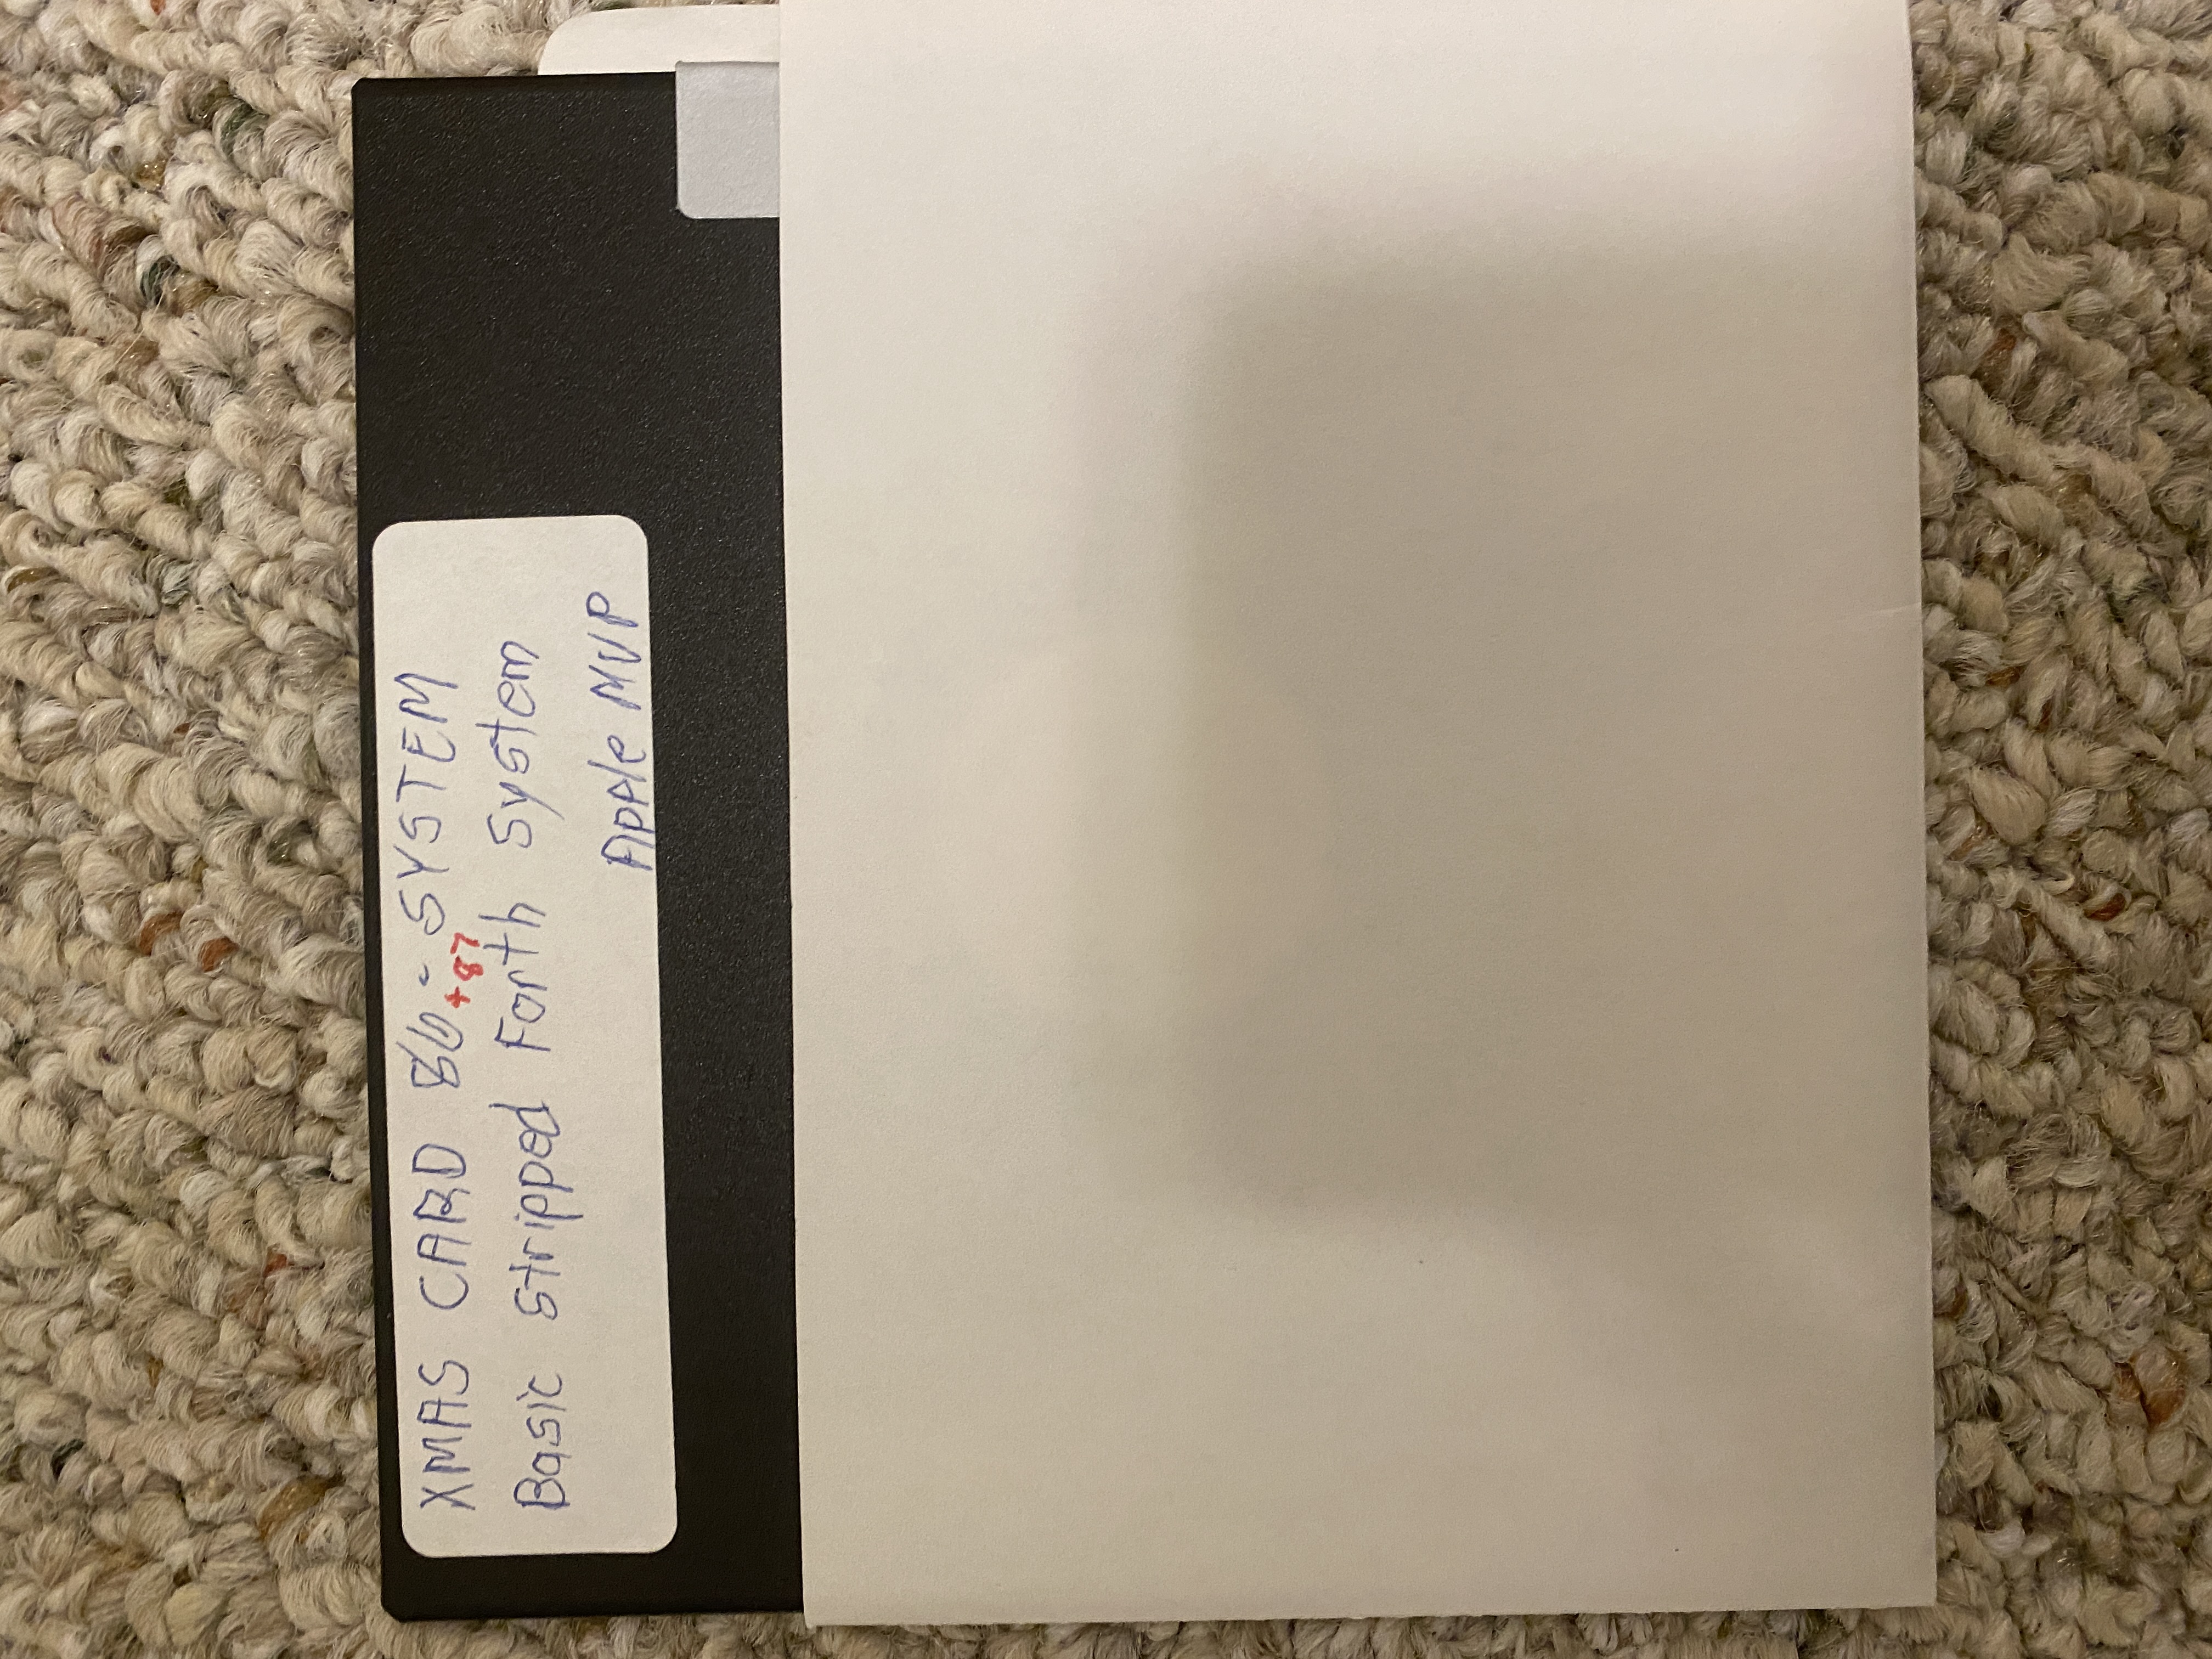 XMAS CARD 86 - SYSTEM
+87
Basic Stripped Forth System
Apple MVP